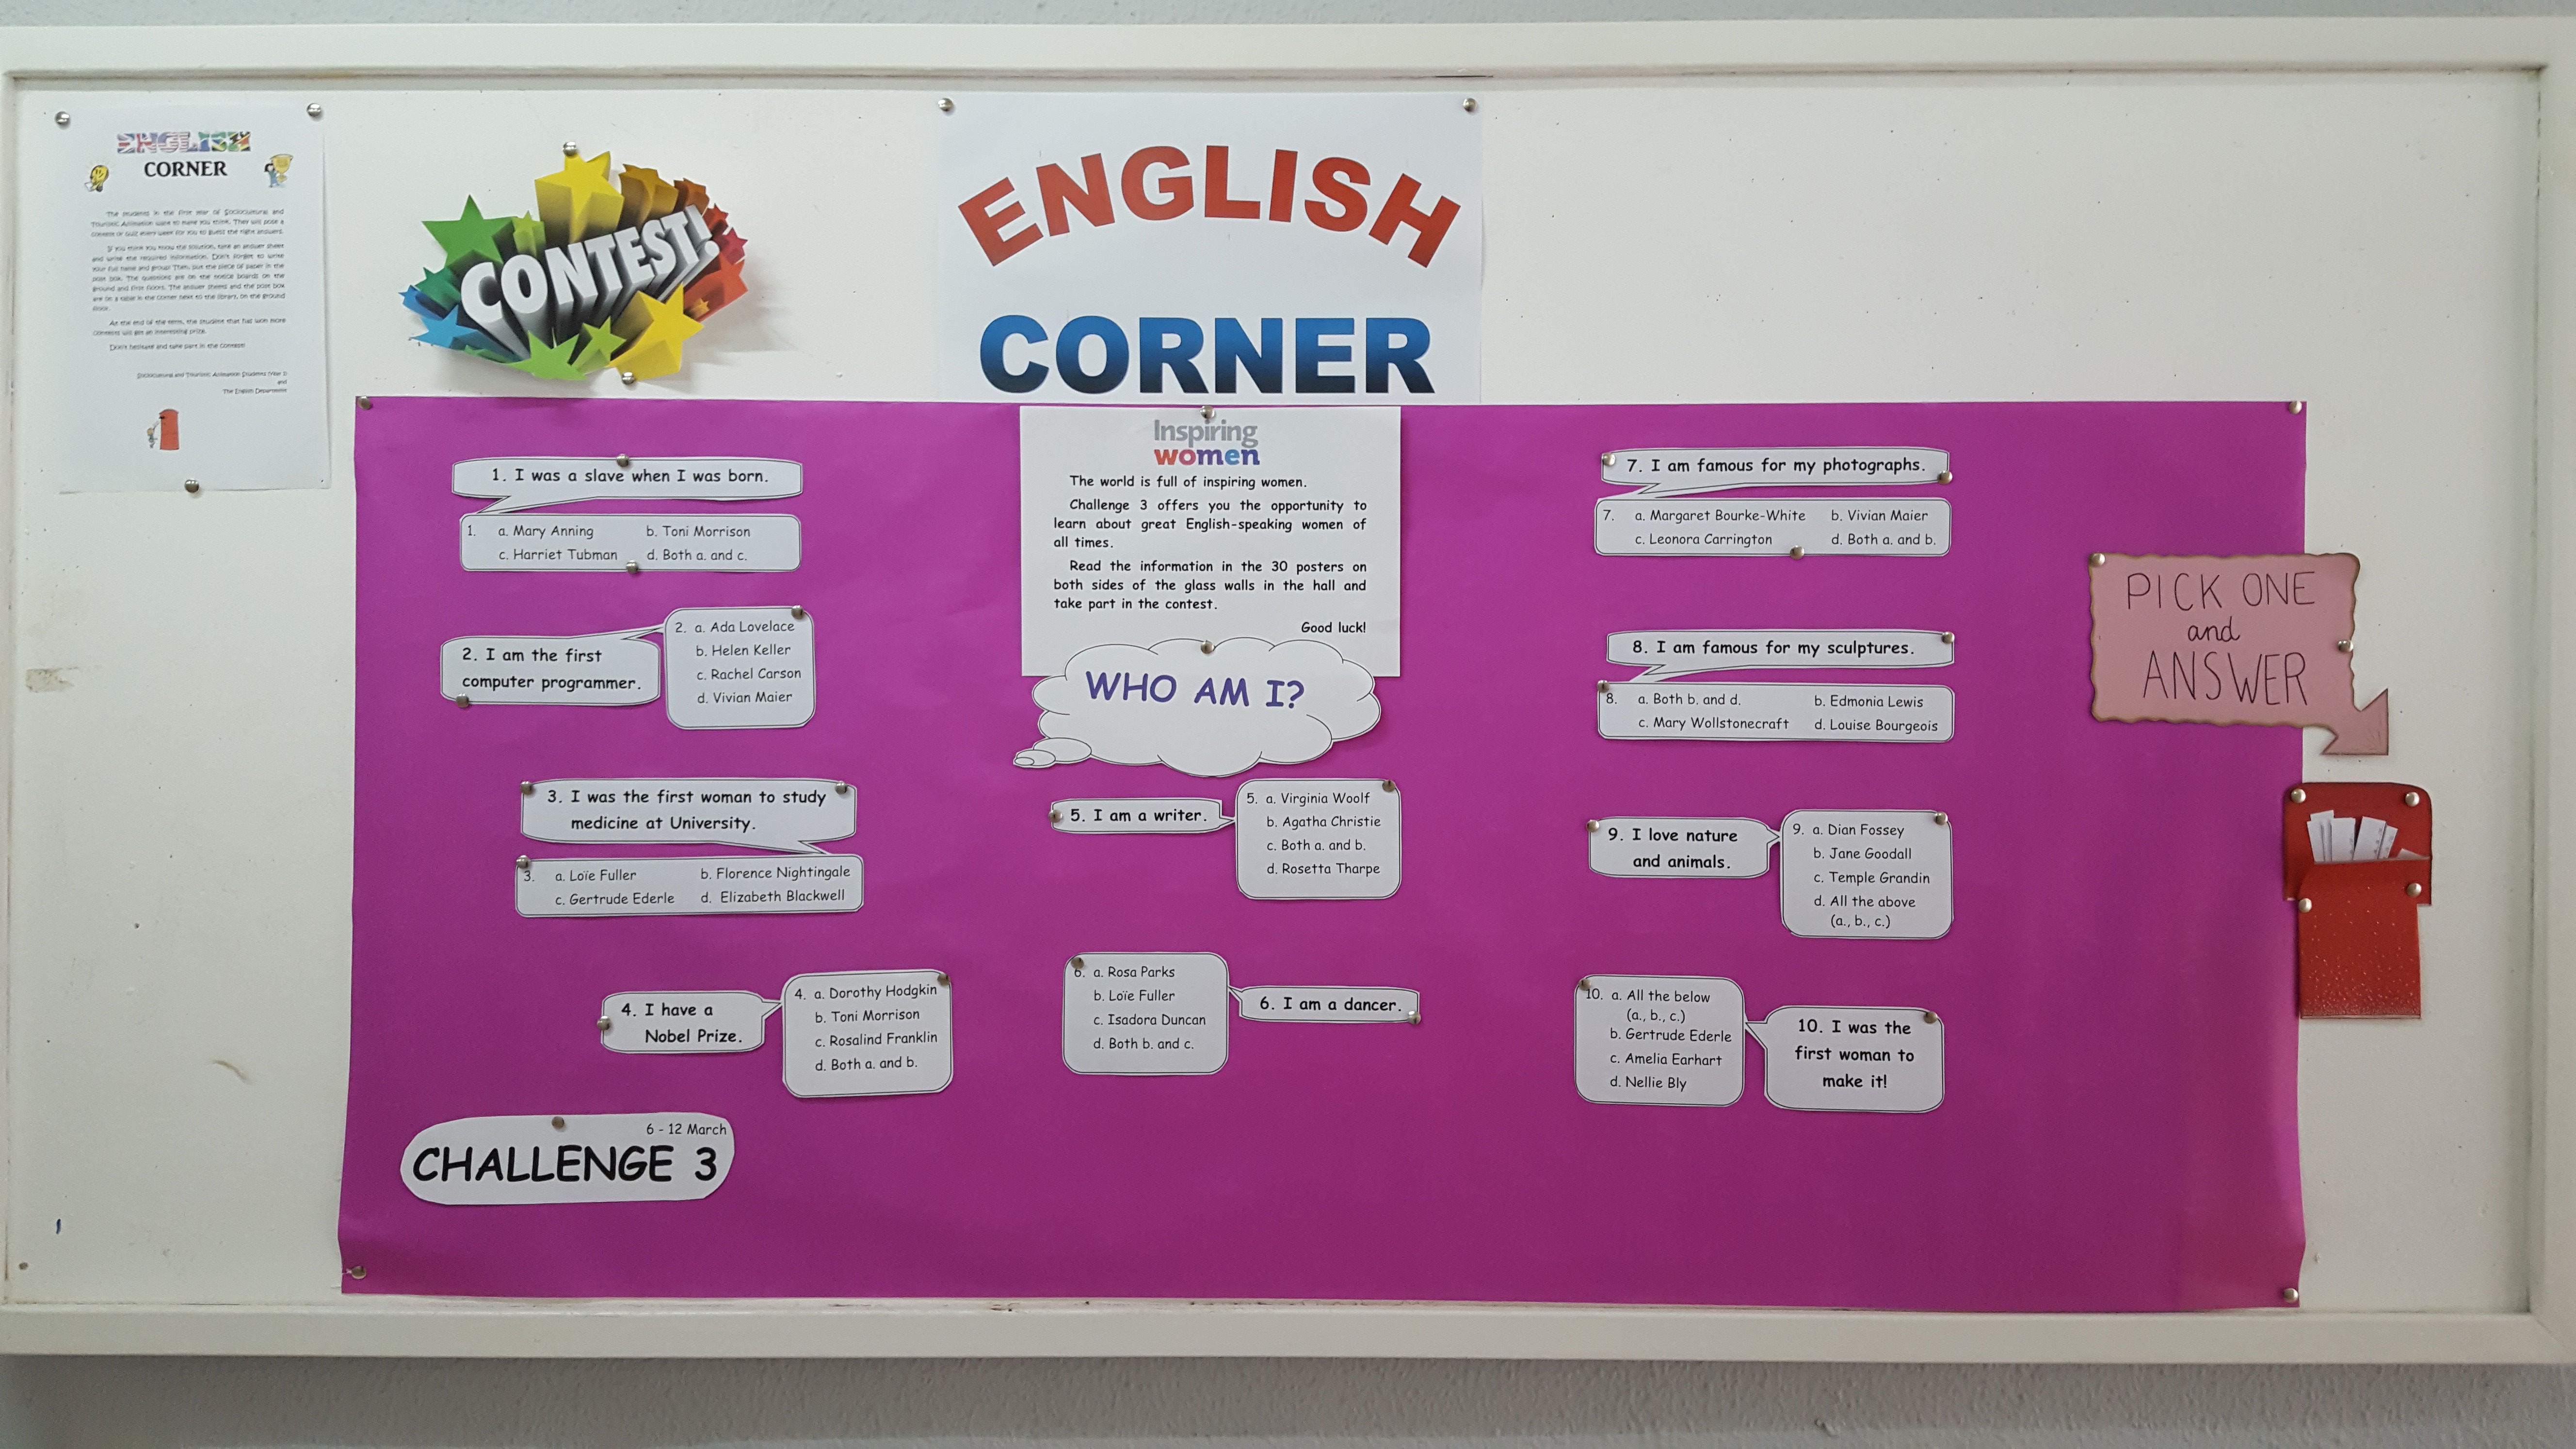 ENGLISH
CORNER
The students in the first year of Sociocultural and
Touristic Animation want to make you think. They will pose a
contest or quiz every week for you to guess the right answers.
If you think you know the solution, take an answer sheet
and write the required information. Don't forget to write
your full name and group! Then, put the piece of paper in the
post box. The questions are on the notice boards on the
ground and first floors. The answer sheets and the post box
are on a table in the corner next to the library, on the ground
floor.
At the end of the term, the student that has won more
contests will get an interesting prize.
Don't hesitate and take part in the contest!
Sociocultural and Touristic Animation Students (Year 1)
and
The English Department
CONTEST!
ENGLISH
CORNER
Inspiring
women
The world is full of inspiring women.
Challenge 3 offers you the opportunity to
learn about great English-speaking women of
all times.
Read the information in the 30 posters on
both sides of the glass walls in the hall and
take part in the contest.
Good luck!
WHO AM I?
1. I was a slave when I was born.
1. a. Mary Anning b. Toni Morrison
c. Harriet Tubman d. Both a. and c.
2. I am the first
computer programmer.
2. a. Ada Lovelace
b. Helen Keller
c. Rachel Carson
d. Vivian Maier
3. I was the first woman to study
medicine at University.
3. a. Loïe Fuller b. Florence Nightingale
c. Gertrude Ederle d. Elizabeth Blackwell
4. I have a
Nobel Prize.
4. a. Dorothy Hodgkin
b. Toni Morrison
c. Rosalind Franklin
d. Both a. and b.
6 - 12 March
CHALLENGE 3
5. I am a writer.
5. a. Virginia Woolf
b. Agatha Christie
c. Both a. and b.
d. Rosetta Tharpe
6. a. Rosa Parks
b. Loïe Fuller
c. Isadora Duncan
d. Both b. and c.
6. I am a dancer.
7. I am famous for my photographs.
7. a. Margaret Bourke-White b. Vivian Maier
c. Leonora Carrington d. Both a. and b.
8. I am famous for my sculptures.
8. a. Both b. and d. b. Edmonia Lewis
c. Mary Wollstonecraft d. Louise Bourgeois
9. I love nature
and animals.
9. a. Dian Fossey
b. Jane Goodall
c. Temple Grandin
d. All the above
(a., b., c.)
10. a. All the below
(a., b., c.)
b. Gertrude Ederle
c. Amelia Earhart
d. Nellie Bly
10. I was the
first woman to
make it!
PICK ONE
and
ANSWER